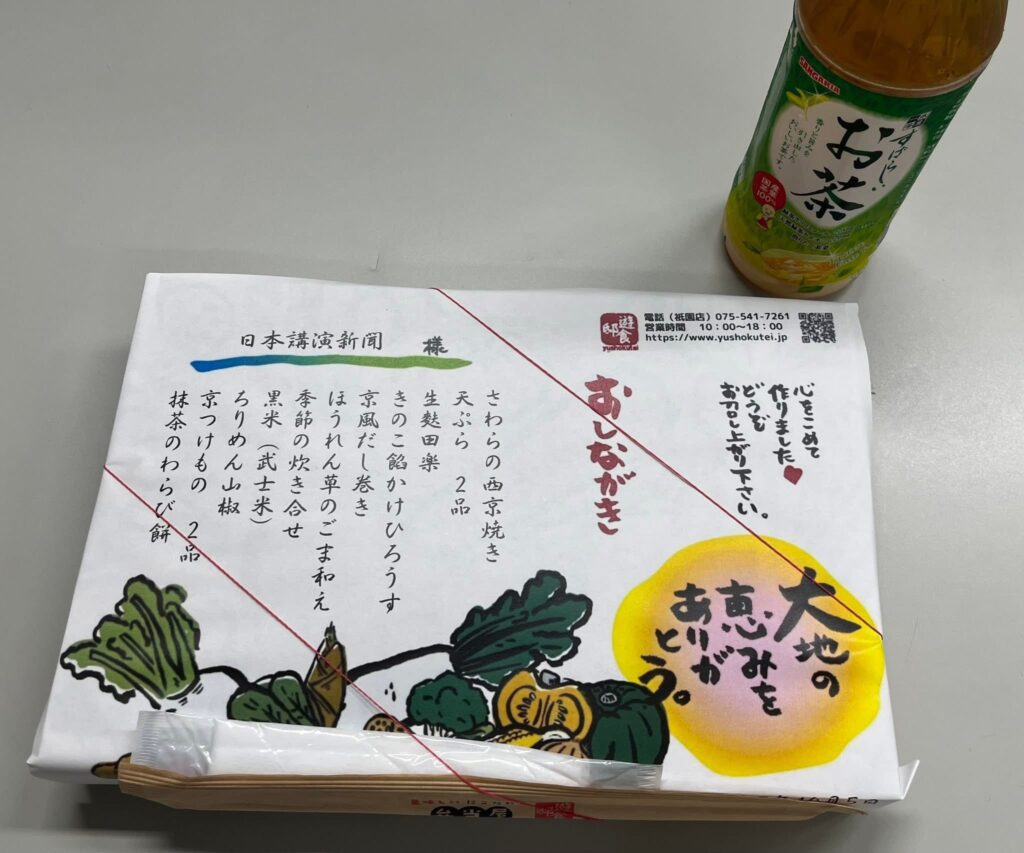 SANGARIA
すばらしい
お茶
香りと旨みを
引き出した
おいしいお茶です。
国産
茶葉
100%
遊食邸
yushokutei
電話（祇園店）075-541-7261
営業時間　10：00〜18：00
https://www.yushokutei.jp
日本講演新聞　様
心をこめて
作りました♥
どうぞ
お召し上がり下さい。
おしながき
さわらの西京焼き
天ぷら　2品
生麩田楽
きのこ餡かけひろうす
京風だし巻き
ほうれん草のごま和え
季節の炊き合せ
黒米（武士米）
ちりめん山椒
京つけもの　2品
抹茶のわらび餅
大地の
恵みを
ありが
とう。
弁当屋